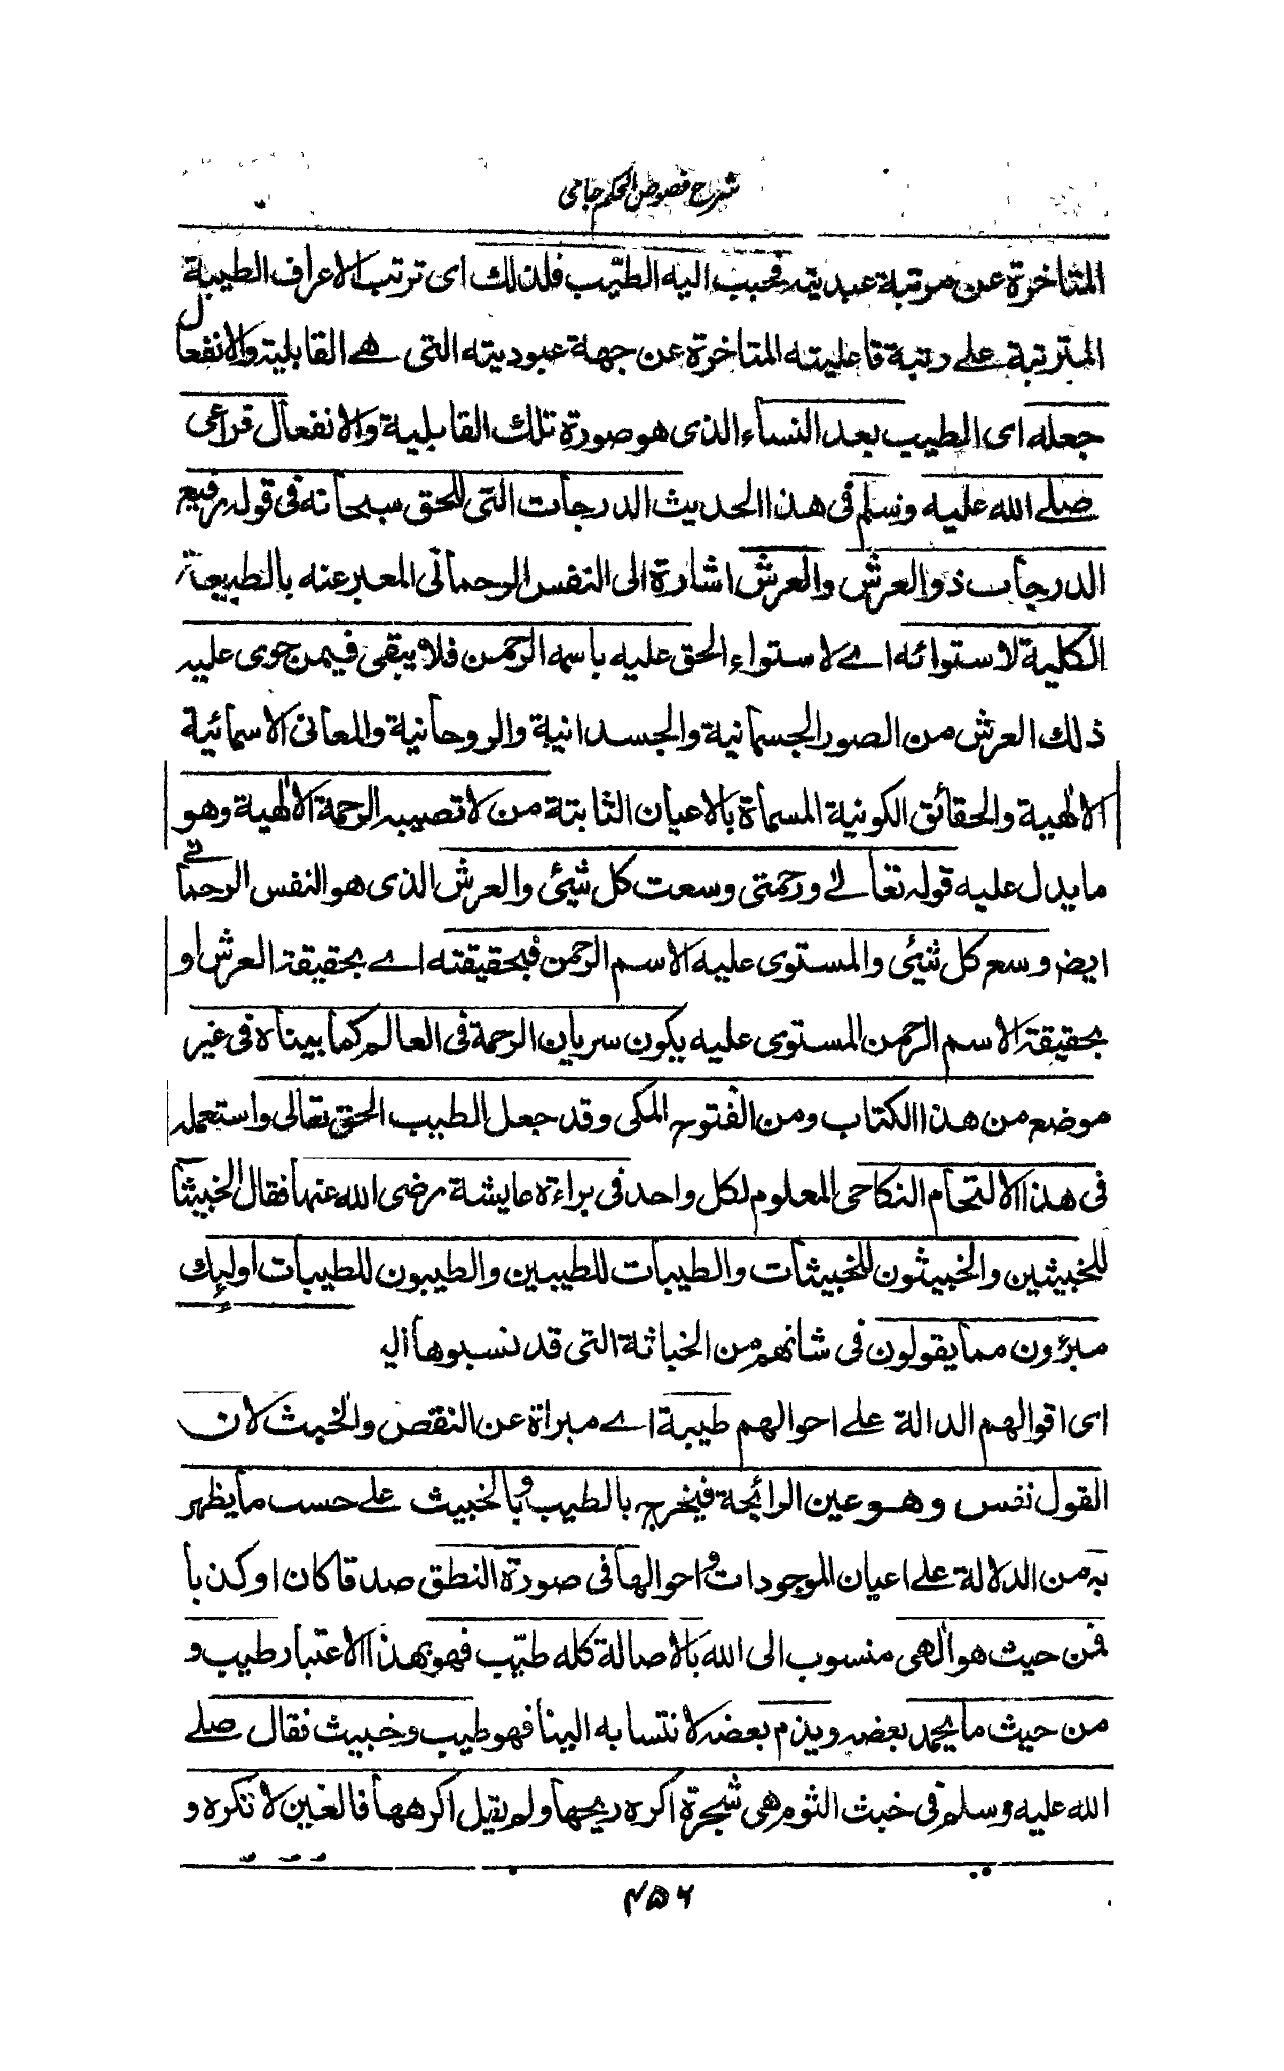 شرح فصوص الحكم جامى
المتأخرة عن مرتبة عبديته فحبب اليه الطيّب فلذلك اى ترتب الاعراف الطيبة
المترتبة على رتبة فاعليته المتاخرة عن جهة عبوديته التى هے القابلية والانفعال
جعله اى الطيب بعد النساء الذى هو صورة تلك القابلية والانفعال فراعى
صلے الله عليه وسلم فى هذا الحديث الدرجات التى للحق سبحانه فى قوله رفيع
الدرجات ذو العرش والعرش اشارة الى النفس الرحمانى المعبر عنه بالطبيعة
الكلية لاستوائه اے لاستواء الحق عليه باسمه الرحمن فلا يبقى فيمن حوى عليه
ذلك العرش من الصور الجسمانية والجسدانية والروحانية والمعانى الاسمائية
الالٰهية والحقائق الكونية المسماة بالاعيان الثابتة من لا تصيبه الرحمة الالٰهية وهو
ما يدل عليه قوله تعالے ورحمتى وسعت كل شيئ والعرش الذى هو النفس الرحمانے
ايض وسع كل شيئ والمستوى عليه الاسم الرحمن فبحقيقته اے بحقيقة العرش او
بحقيقة الاسم الرحمن المستوى عليه يكون سريان الرحمة فى العالم كما بيناه فى غير
موضع من هذا الكتاب ومن الفتوح المكى وقد جعل الطيب الحق تعالى واستعمله
فى هذا الالتحام النكاحى المعلوم لكل واحد فى براءة عايشة رضى الله عنها فقال الخبيثا
للخبيثين والخبيثون للخبيثات والطيبات للطيبين والطيبون للطيبات اولٰئك
مبرؤون مما يقولون فى شانهم من الخباثة التى قد نسبوها اليه
اى اقوالهم الدالة علے احوالهم طيبة اے مبراة عن النقص والخبث لان
القول نفس وهو عين الرائحة فيخرج بالطيب وبالخبيث علے حسب ما يظهر
به من الدلالة علے اعيان الموجودات واحوالها فى صورة النطق صدقا كان او كذبا
فمن حيث هو الٰهى منسوب الى الله بالاصالة كله طيّب فهو بهذا الاعتبار طيب و
من حيث ما يحمد بعضه ويذم بعضه لانتسابه الينا فهو طيب وخبيث فقال صلے
الله عليه وسلم فى خبث الثوم هى شجرة اكره ريحها ولم يقل اكرهها فالعين لا تكره و
۴۵۶